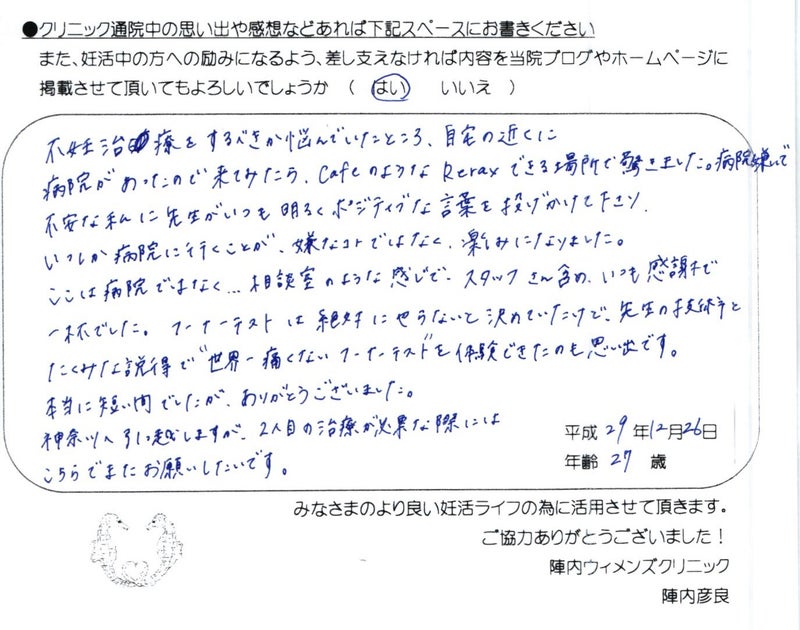 ●クリニック通院中の思い出や感想などあれば下記スペースにお書きください
また、妊活中の方への励みになるよう、差し支えなければ内容を当院ブログやホームページに
掲載させて頂いてもよろしいでしょうか （ はい いいえ ）
不妊治療をするべきか悩んでいたところ、自宅の近くに
病院があったので来てみたら、CafeのようなRelaxできる場所で驚きました。病院嫌いで
不安な私に先生がいつも明るくポジティブな言葉を投げかけて下さり、
いつしか病院に行くことが、嫌なコトではなく、楽しみになりました。
ここは病院ではなく…相談室のような感じで、スタッフさん含め、いつも感謝で
一杯でした。フーナーテストは絶対にやらないと決めていたけど、先生の技術と
たくみな説得で"世界一痛くないフーナーテスト"を体験できたのも思い出です。
本当に短い間でしたが、ありがとうございました。
神奈川へ引っ越しますが、2人目の治療が必要な際には
こちらでまたお願いしたいです。
平成 29 年 12 月 26 日
年齢 27 歳
みなさまのより良い妊活ライフの為に活用させて頂きます。
ご協力ありがとうございました！
陣内ウィメンズクリニック
陣内彦良